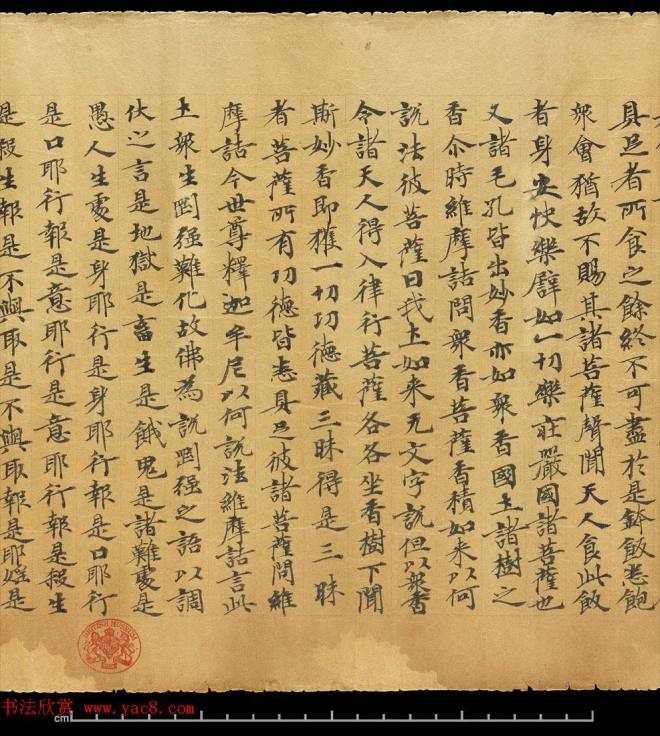 具足者所食之餘終不可盡於是鉢飯悉飽
眾會猶故不賜其諸菩薩聲聞天人食此飯
者身安快樂譬如一切樂莊嚴國諸菩薩也
又諸毛孔皆出妙香亦如眾香國土諸樹之
香尒時維摩詰問眾香菩薩香積如来以何
說法彼菩薩曰我土如来无文字說但以眾香
令諸天人得入律行菩薩各各坐香樹下聞
斯妙香即獲一切功德藏三昧得是三昧
者菩薩所有功德皆悉具足彼諸菩薩問維
摩詰今世尊釋迦牟尼以何說法維摩詰言此
土眾生剛强難化故佛為說剛强之語以調
伏之言是地獄是畜生是餓鬼是諸難處是
愚人生處是身耶行是身耶行報是口耶行
是口耶行報是意耶行是意耶行報是煞生
是煞生報是不與取是不與取報是耶婬是
BRITISH MUSEUM
书法欣赏 www.yac8.com
cm